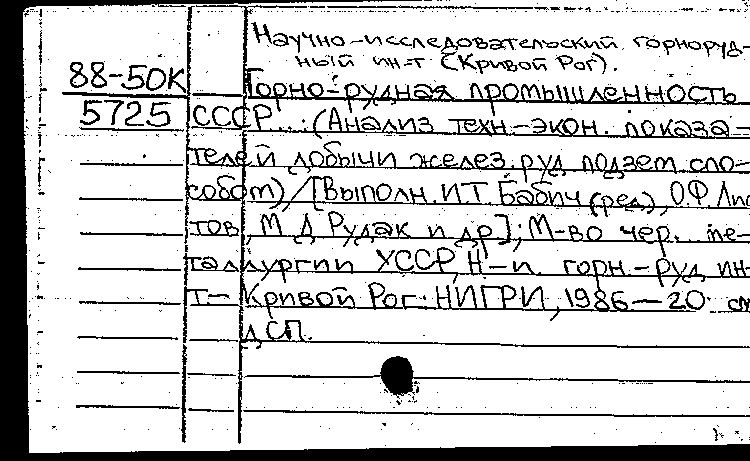 Научно-исследовательский горноруд-
ный ин-т (Кривой Рог).
88-50К Горно-рудная промышленность
5725 СССР...: (Анализ техн.-экон. показа-
телей добычи желез. руд подзем. спо-
собом) / [Выполн. И.Т. Бабич (ред.), О.Ф. Лис
тов, М Д Рудак и др]; М-во чер. ме-
таллургии УССР, Н.-и. горн.-руд ин-
т – Кривой Рог: НИГРИ, 1986 – 20 см
ДСП.